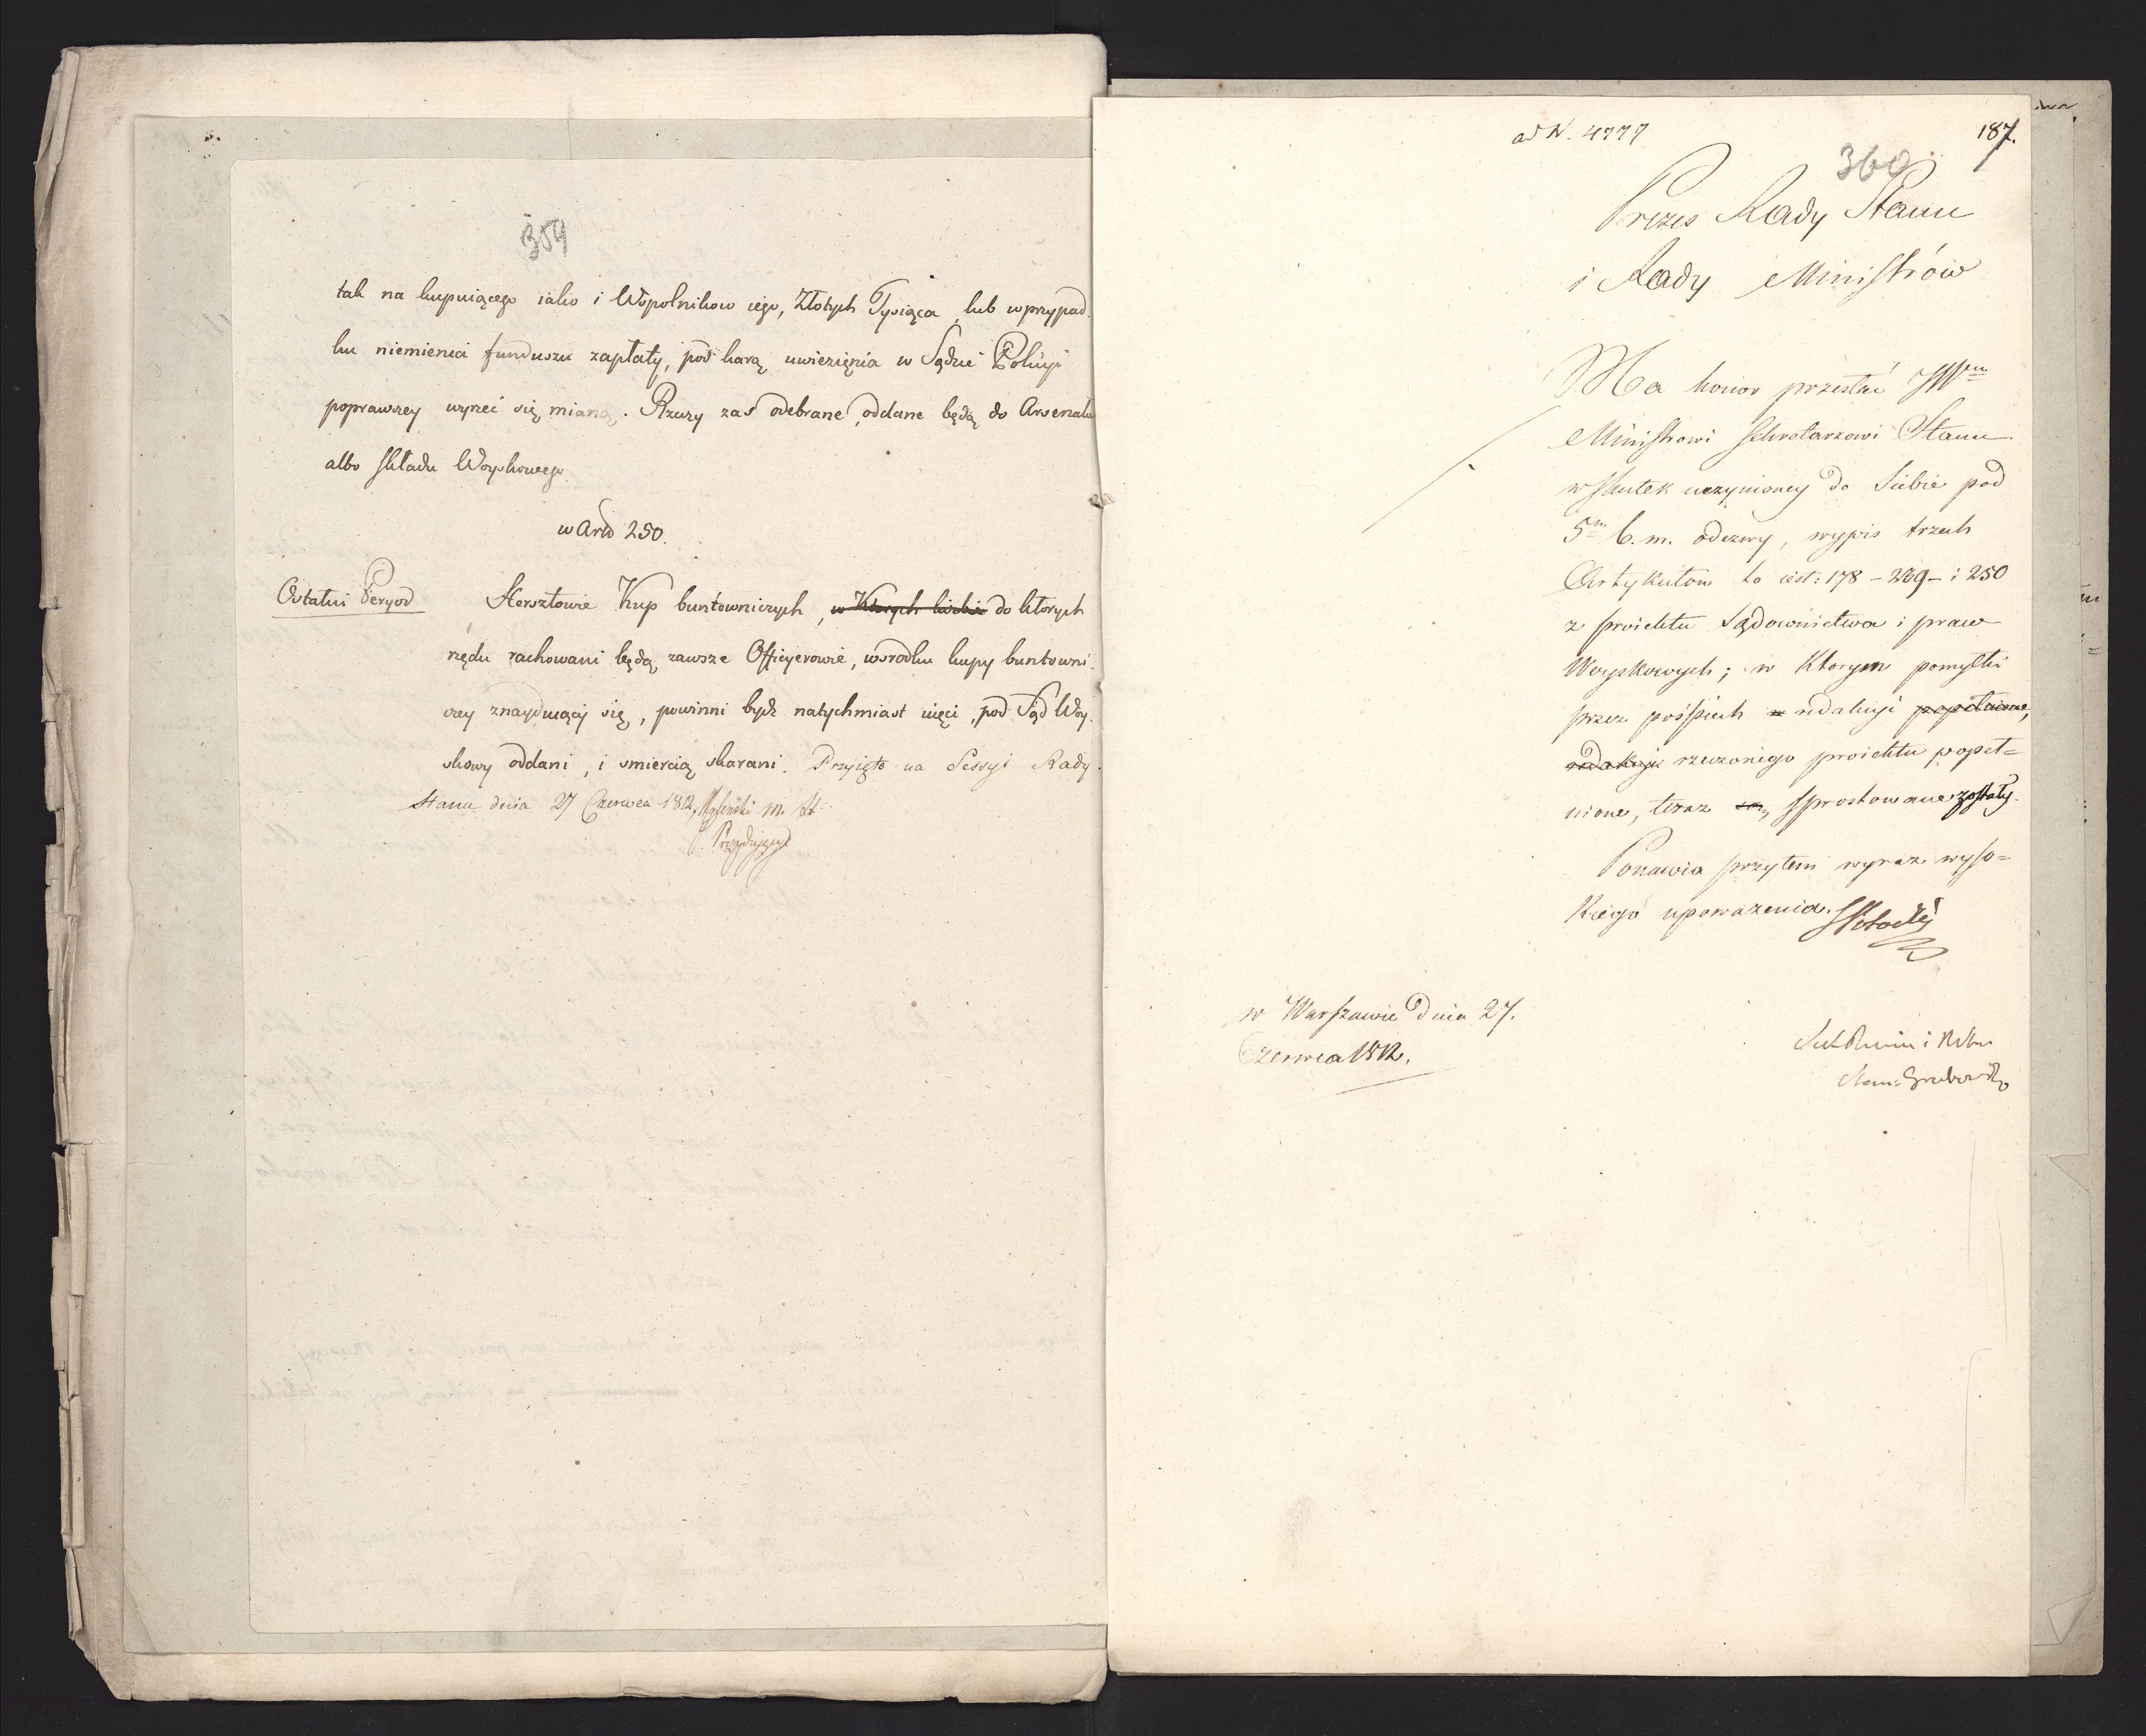 359
tak na kupuiącego iako i Wspolnikow iego, Złotych Tysiąca, lub w przypad-
ku niemienia funduszu zapłaty, pod karą uwięzięnia w Sądzie Policyi
poprawczey wyrzec się mianą. Rzeczy zas odebrane, oddane będą do Arsenału
albo składu Woyskowego.
w Art 250.
Ostatni Peryod
Hersztowie Kup buntowniczych, w Ktorych liczbie do ktorych
rzędu rachowani będą zawsze Officyerowie, wsrodku kupy buntowni-
czey znayduiący się, powinni bydź natychmiast uięci, pod Sąd Woy-
skowy oddani, i smiercią skarani. Przyięto na Sessyi Rady
Stanu dnia 27 Czerwca 1812. m. St.
Prezyduiący
ad N. 4777
187.
360
Prezes Rady Stanu
i Rady Ministrów
Ma honor przesłać JW
Ministrowi Sekretarzowi Stanu
w skutek uczynioney do Siebie pod
5m b. m. odezwy, wypis trzech
Artykułów to iest: 178 – 239 – i 250
z proiektu Sądownictwa i praw
Woyskowych; w Ktorym pomyłki
przez pośpiech w redakcyi popełnione,
redakcyi rzeczonego proiektu popeł=
nione, teraz są sprostowane zostały.
Ponawia przytem wyraz wyso=
kiego upoważenia. SPotocki
w Warszawie Dnia 27.
Czerwca 1812.
Stan: Grabowski